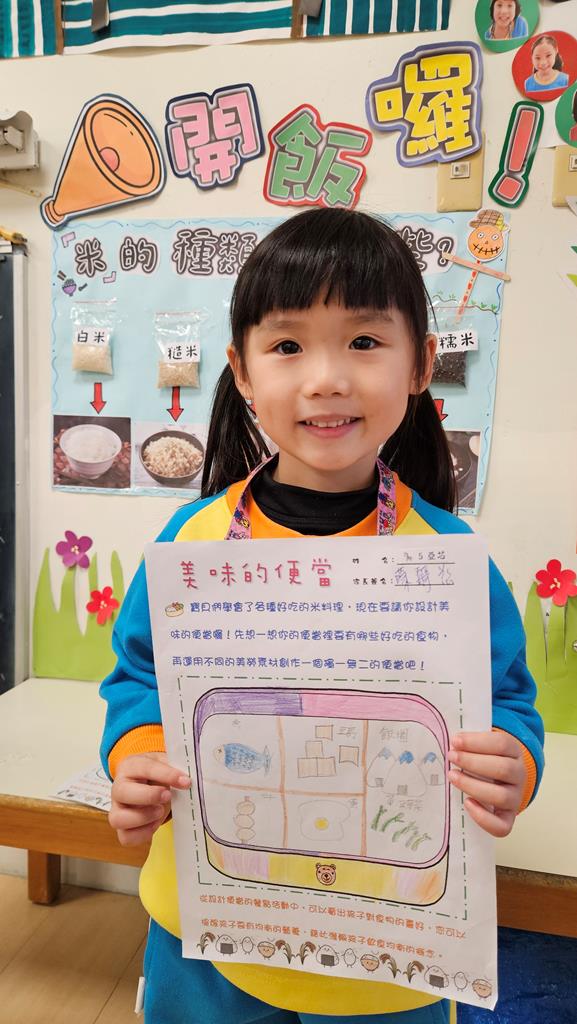 開飯囉！
米的種類
?
白米
糙米
糯米
美味的便當
姓 名：
家長簽名：
寶貝們學會了各種好吃的米料理，現在要請你設計美
味的便當囉！先想一想你的便當裡要有哪些好吃的食物，
再運用不同的美勞素材創作一個獨一無二的便當吧！
魚
飯糰
從設計便當的餐點活動中，可以看出孩子對食物的喜好，您可以